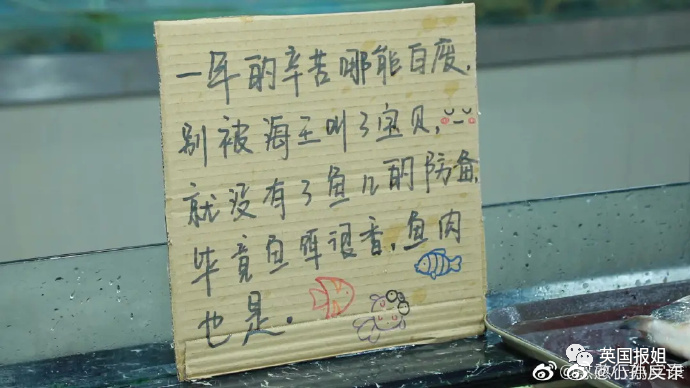 一年的辛苦哪能白废，
别被海王叫了宝贝，
就没有了鱼儿的防备，
毕竟鱼饵很香，鱼肉
也是。
英国报姐